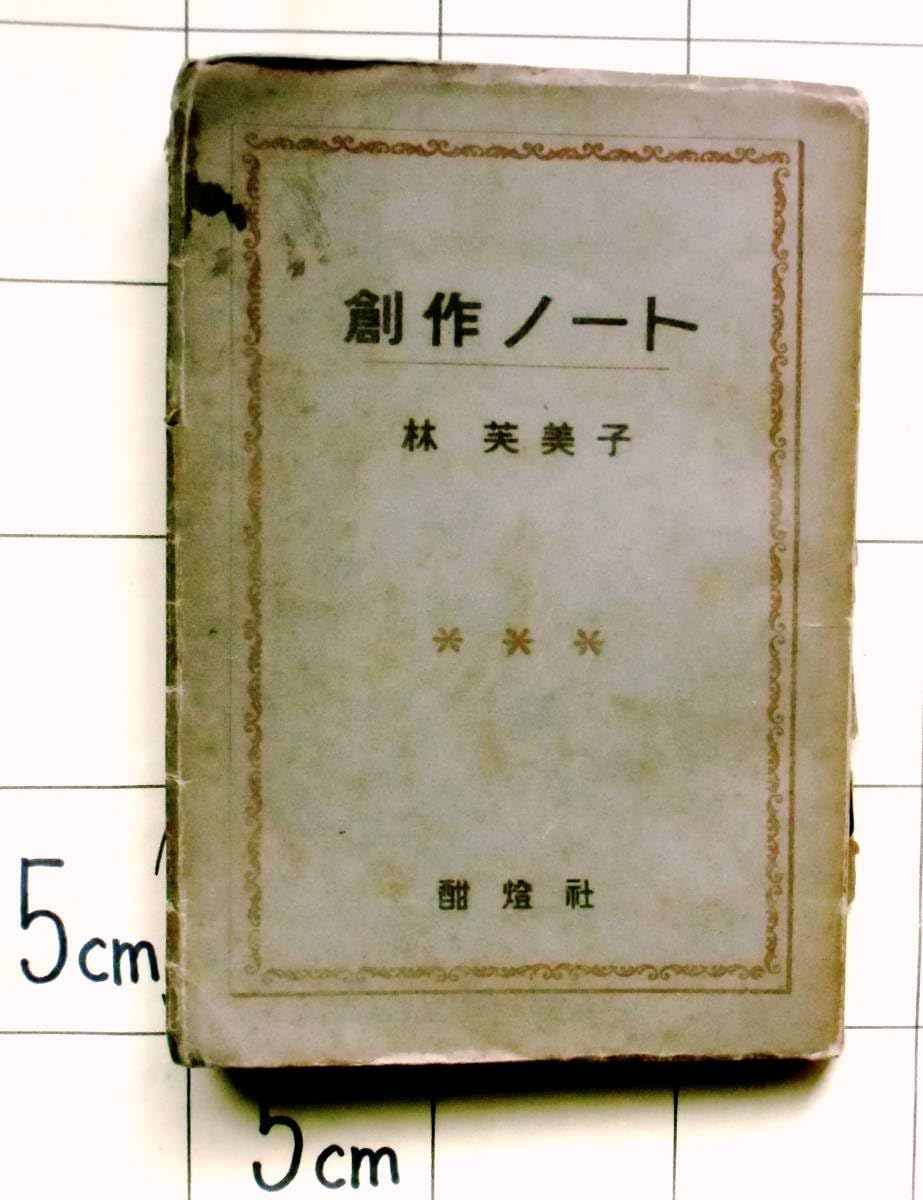 創作ノート
林 芙美子
＊ ＊ ＊
酣燈社
5cm
5cm